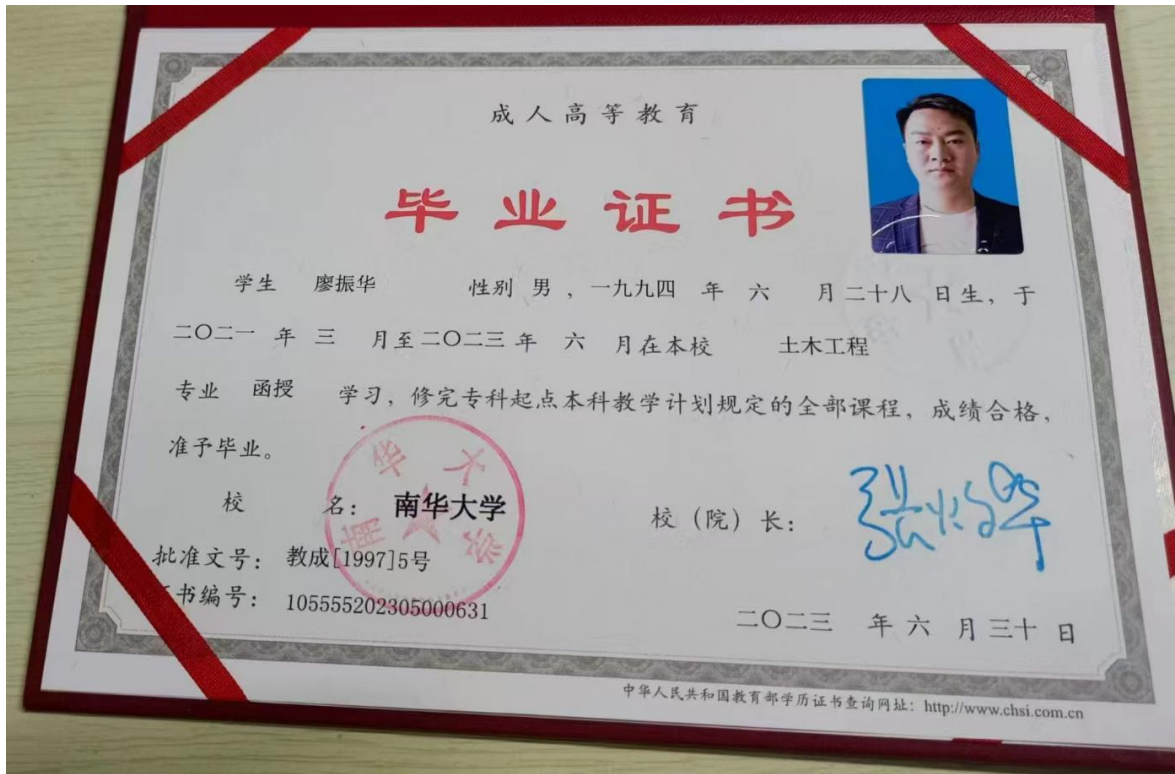 成人高等教育
毕业证书
学生 廖振华 性别 男 ，一九九四 年 六 月 二十八 日生，于
二〇二一 年 三 月至 二〇二三 年 六 月在本校 土木工程
专业 函授 学习，修完专科起点本科教学计划规定的全部课程，成绩合格，
准予毕业。
校 名： 南华大学
南华大学
校（院）长：
批准文号： 教成[1997]5号
书编号： 105555202305000631
二〇二三 年 六 月 三十 日
中华人民共和国教育部学历证书查询网址：http://www.chsi.com.cn